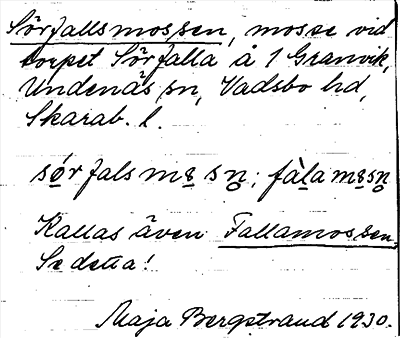 Sörfallsmossen, mosse vid
torpet Sörfalla å 1 Granvik,
Undenäs sn, Vadsbo hd,
Skarab. l.
Kallas även Fallamossen.
Se detta!
Maja Bergstrand 1930.